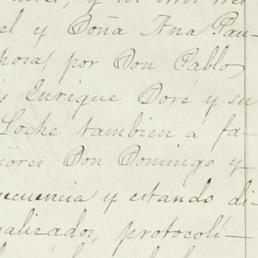 el y Doña Ana Pau-
por Don Pablo
Enrique Dore y su
Loche tambien a fa-
ñores Don Domingo y
cuencia y estando di-
galizados, protocoli-